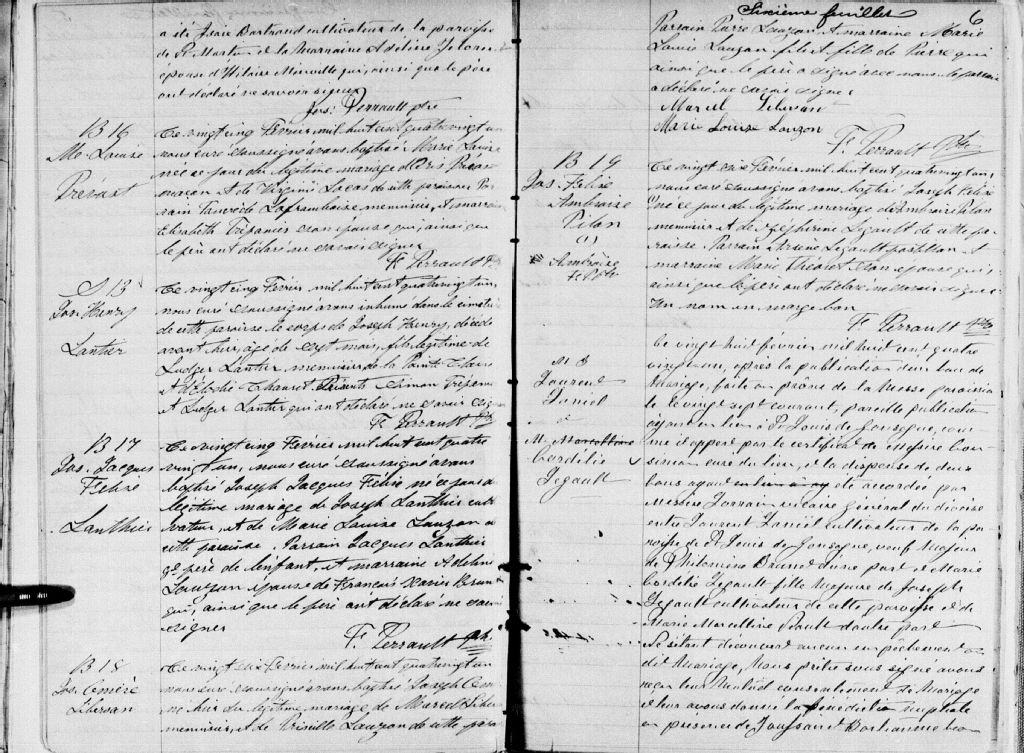 a été Jean Bertrand cultivateur de la paroisse
de Ste Marthe et la marraine Adeline
épouse d'Hilaire Merville qui, ainsi que le père
ont déclaré ne savoir signer
Jos: Perrault ptre
B 16
Me. Louise
Prévost
Ce vingt cinq Février mil huit cent quatre vingt un
nous curé soussigné avons baptisé Marie Louise
née ce jour du légitime mariage
maçon et de Virginie Lucas de cette paroisse. Par-
rain Tancrède Laframboise menuisier, et marraine
Elizabeth Trépanier son épouse qui, ainsi que
le père ont déclaré ne savoir signer
F. Perrault Ptre
S 13
Jos Henry
Lantier
Ce vingt cinq Février mil huit cent quatre vingt un,
nous curé soussigné avons inhumé dans le cimetière
de cette paroisse le corps de Joseph Henry, décédé
avant hier, âgé de sept mois, fils légitime de
Ludger Lantier menuisier de la Pointe Claire
et d'Elodie Chauret Présents Simon Trépanier
et Ludger Lantier qui ont déclaré ne savoir signer
F. Perrault Ptr
B 17
Jos. Jacques
Félix
Lanthier
Ce vingt cinq Février mil huit cent quatre
vingt un, nous curé soussigné avons
baptisé Joseph Jacques Félix né ce jour du
légitime mariage de Joseph Lanthier culti-
vateur, et de Marie Louise Lauzon de
cette paroisse. Parrain Jacques Lanthier
gd père de l'enfant, et marraine Adeline
Lauzon épouse de François Xavier Brunet
qui, ainsi que le père ont déclaré ne savoir
signer
F. Perrault Ptr.
B 18
Jos.
Libersan
Ce vingt six Février mil huit cent quatre vingt un
nous curé soussigné avons baptisé Joseph
né hier du légitime mariage de Marcel Libersan
menuisier, et de Priscille Lauzon de cette paroisse
Sixième feuillet
6
Parrain Pierre Lauzon et marraine Marie
Louise Lauzon fils et fille de Pierre qui
ainsi que le père a signé avec nous le parrain
a déclaré ne savoir signer
Marcel Libersan
Marie Louise Lauzon
F. Perrault Ptre
B 19
Jos. Félix
Ambroise
Pilon
(1)
Ambroise
F. P. Ptre
Ce vingt six Février mil huit cent quatre vingt un,
nous curé soussigné avons baptisé Joseph Félix
né ce jour du légitime mariage d'Ambroise Pilon
menuisier et de Zéphirine Legault de cette pa-
roisse. Parrain Arsène Legault postillon et
marraine Marie Théoret son épouse qui,
ainsi que le père ont déclaré ne savoir signer
Un nom en marge bon
F. Perrault Ptre
M 3
Laurent
Daniel
&
M. Marcelline
Cordélie
Legault
Ce vingt huit février mil huit cent quatre
vingt un, après la publication d'un ban de
Mariage, faite au prône de la Messe paroissiale
le vingt sept courant, pareille publication
ayant eu lieu à St. Louis de Gonzague, com-
me il appert par le certificat de Messire
curé du lieu, et la dispense de deux
bans ayant été accordée par
Messire Lorrain vicaire général du diocèse
entre Laurent Daniel cultivateur de la pa-
roisse de St Louis de Gonzague, veuf Majeur
de Philomène Brunet d'une part et Marie
Cordélie Legault fille Majeure de Joseph
Legault cultivateur de cette paroisse et de
Marie Marcelline Pilault d'autre part
Ne s'étant découvert aucun empêchement au
dit Mariage, Nous prêtre sous signé avons
reçu leur Mutuel consentement de Mariage
et leur avons donné la bénédiction nuptiale
en présence de Toussaint